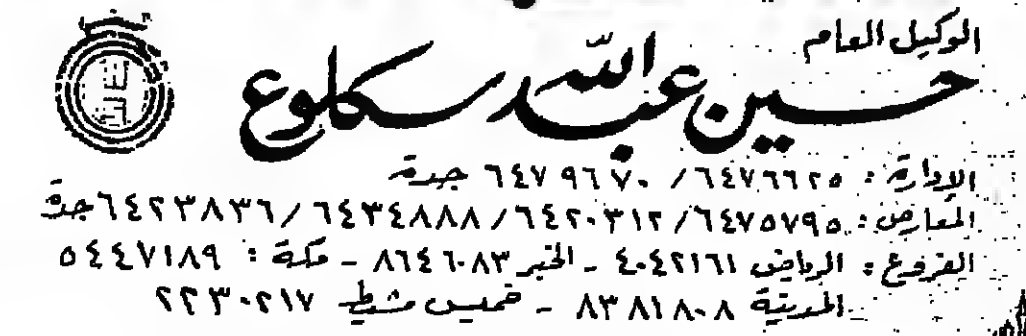 الوكيل العام
حسين عبدالله سكلوع
الإدارة : ٦٤٧٦٦٢٥ / ٦٤٧٩٦٧٠ جدة
المعارض : ٦٤٧٥٧٩٥ / ٦٤٢٠٣١٢ / ٦٤٣٤٨٨٨ / ٦٤٢٣٨٣٦ جدة
الفروع : الرياض ٤٠٤٢١٦١ - الخبر ٨٦٤٦٠٨٣ - مكة : ٥٤٤٧١٨٩
المدينة ٨٣٨١٨٠٨ - خميس مشيط ٢٢٣٠٢١٧